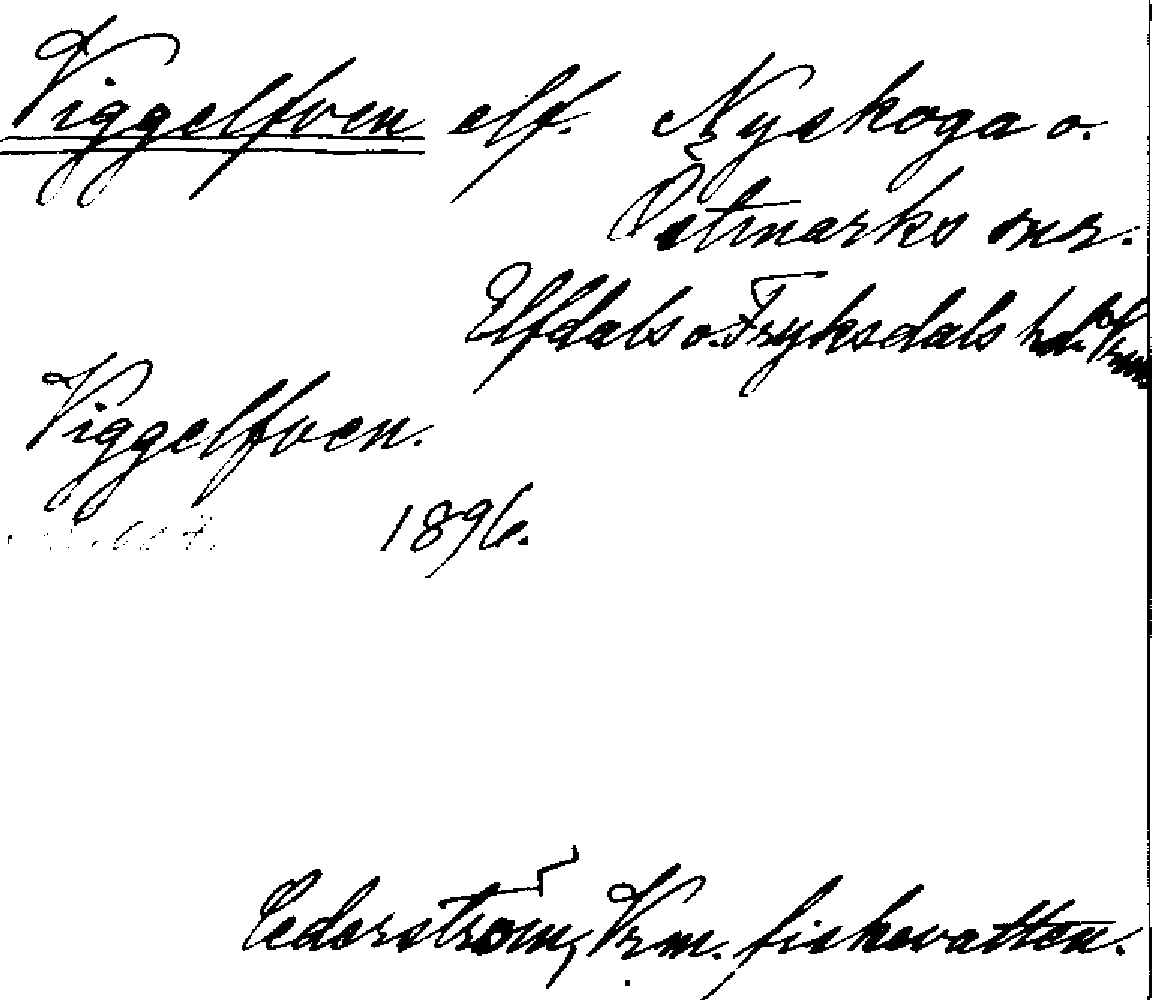 Viggelfven elf. Nyskoga o.
Östmarks snr.
Elfdals o. Fryksdals hd. Vrm
Viggelfven.
1896.
Cederström, Vrm. fiskevatten.